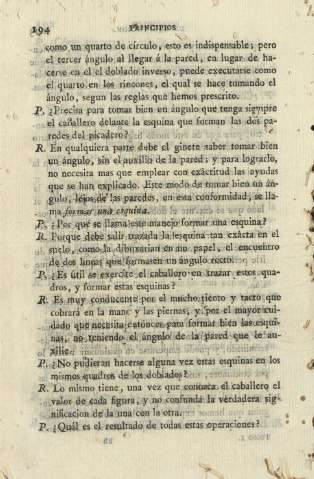 194 PRINCIPIOS
como un quarto de círculo, esto es indispensable; pero
el tercer ángulo al llegar á la pared, en lugar de ha-
cerse en el el doblado inverso, puede executarse como
el quarto en los rincones, el qual se hace tomando el
ángulo, segun las reglas que hemos prescrito.
P. ¿Precisa para tomar bien un ángulo que tenga siempre
el caballero delante la esquina que forman las dos pa-
redes del picadero?
R. En qualquiera parte debe el ginete saber tomar bien
un ángulo, sin el auxilio de la pared; y para lograrlo,
no necesita mas que emplear con exâctitud las ayudas
que se han explicado. Este modo de tomar bien un án-
gulo, lejos de las paredes, en esta conformidad, se lla-
ma formar una esquina.
P. ¿Por qué se llama este manejo formar una esquina?
R. Porque debe salir trazada la esquina tan exâcta en el
suelo, como la dibuxarian en un papel, el encuentro
de dos lineas que formasen un ángulo recto.
P. ¿Es útil se exercite el caballero en trazar estos qua-
dros, y formar estas esquinas?
R. Es muy conducente por el mucho tiento y tacto que
cobrará en la mano y las piernas, y por el mayor cui-
dado que necesita entonces para formar bien las esqui-
nas, no teniendo el ángulo de la pared que le au-
xîlie.
P. ¿No pudieran hacerse alguna vez estas esquinas en los
mismos quadros de los doblados?
R. Lo mismo tiene, una vez que conozca el caballero el
valor de cada figura, y no confunda la verdadera sig-
nificacion de la una con la otra.
P. ¿Quál es el resultado de todas estas operaciones?